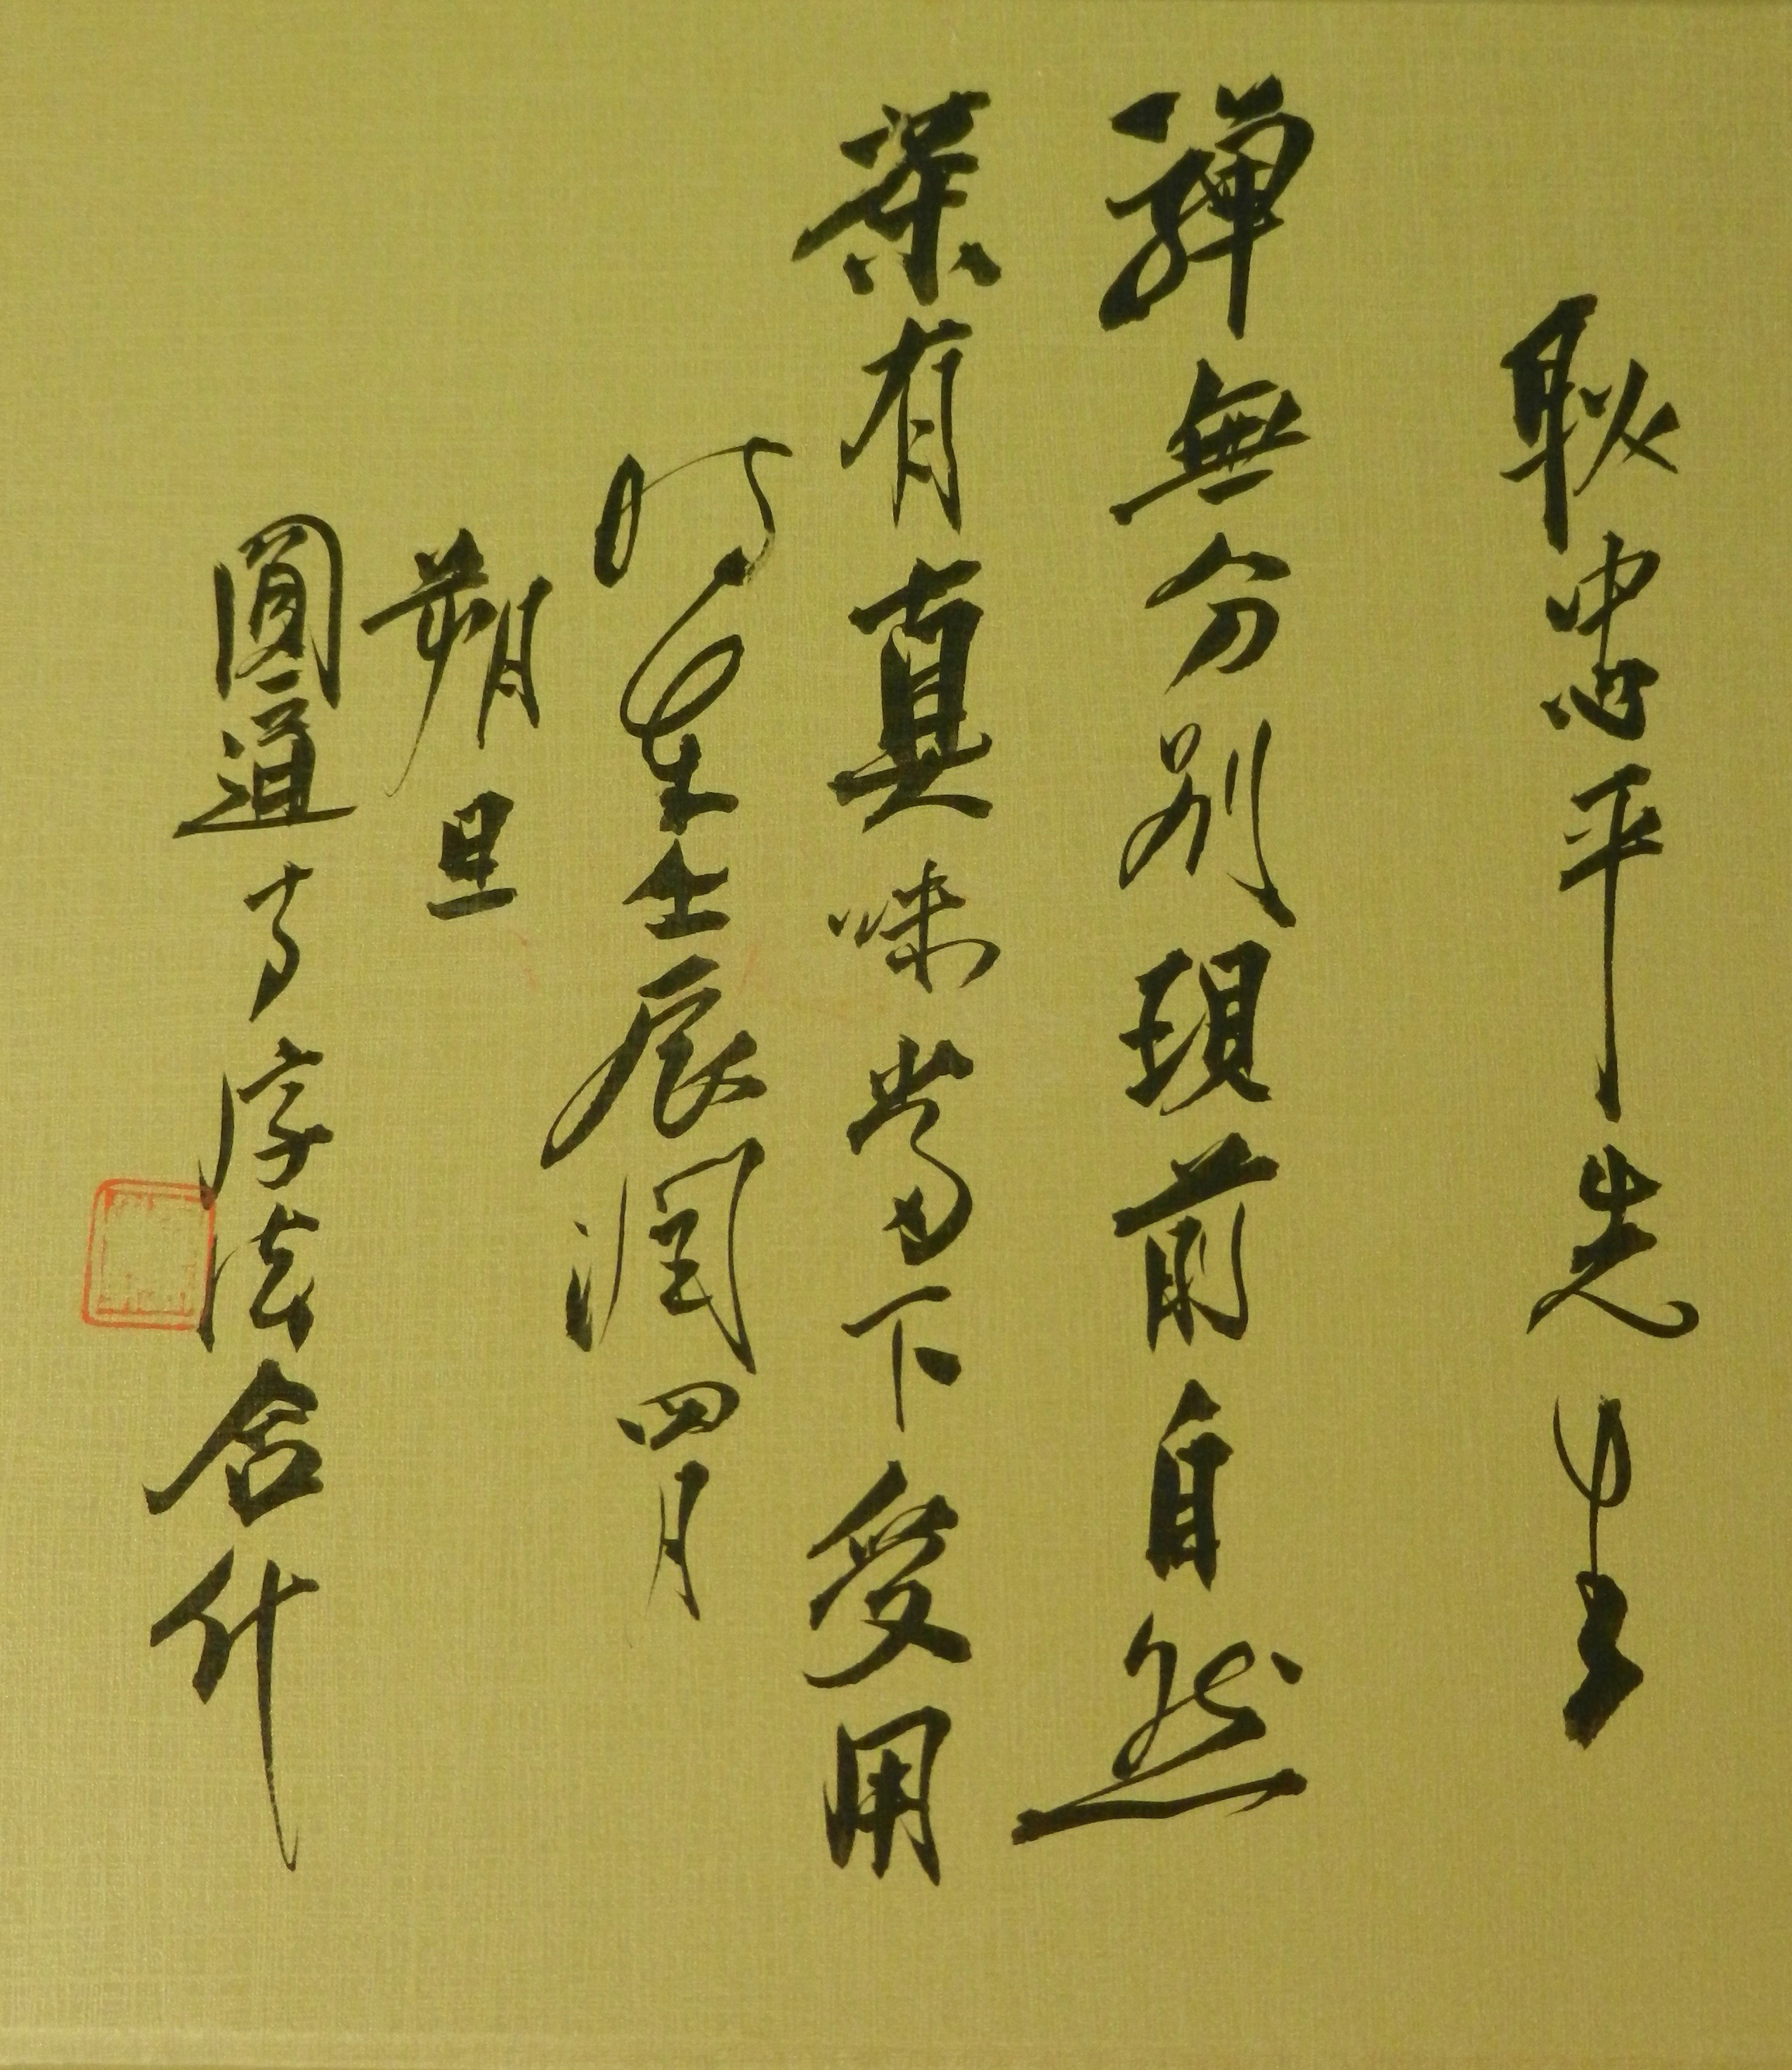 耿忠平先生
禪無分別現前自然
茶有真味當下受用
時在壬辰潤四月
朔旦
圓道寺淳法合什